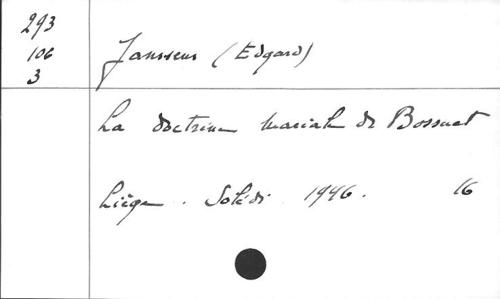 293
106
3
Janssens (Edgard)
La doctrine mariale de Bossuet
Liège. Solédi. 1946. 16